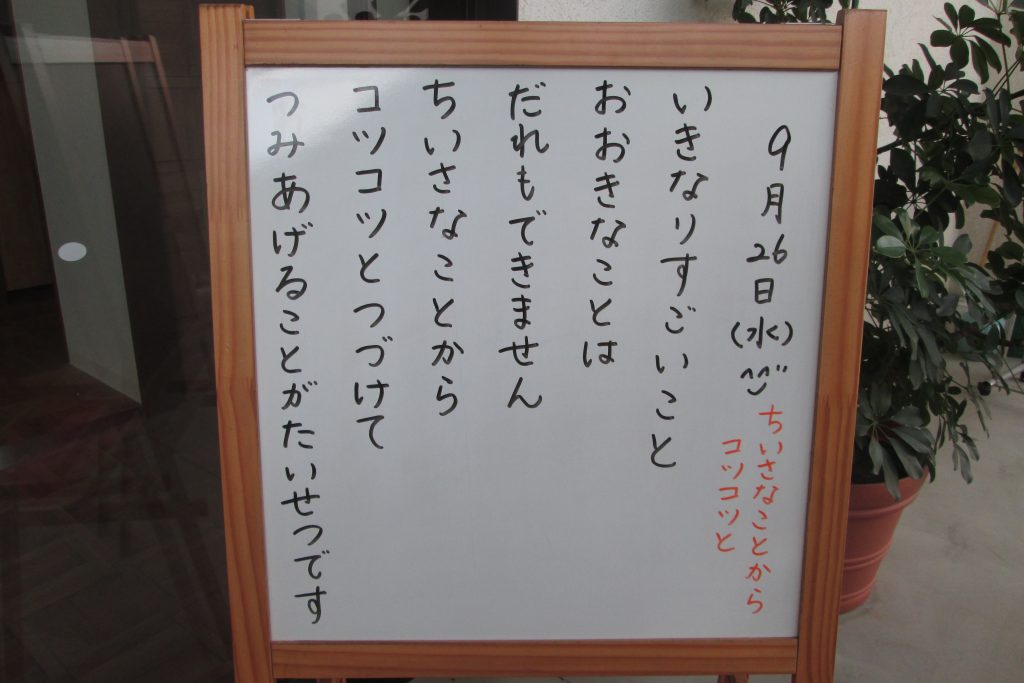 9月26日(水)^^
ちいさなことから
コツコツと
いきなりすごいこと
おおきなことは
だれもできません
ちいさなことから
コツコツとつづけて
つみあげることがたいせつです